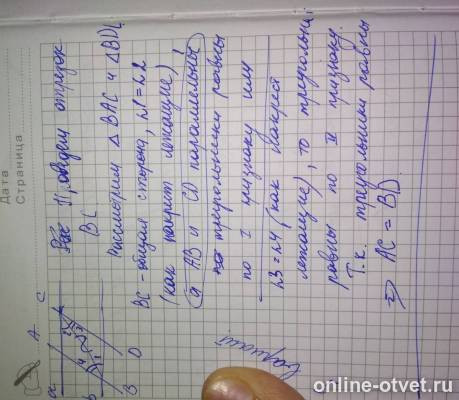 Дата
Страница
а
А С
b
В D
1
2
3
4
11, введем отрезок
BC
Рассмотрим △ BAC и △ BDC
BC - общая сторона, ∠1 = ∠2
(как накрест лежащие)
а AB и CD параллельны
треугольники равны
по I признаку или
∠3 = ∠4 (как накрест
лежащие), то треугольники
равны по II признаку.
Т.к. треугольники равны
=> AC = BD
online-otvet.ru